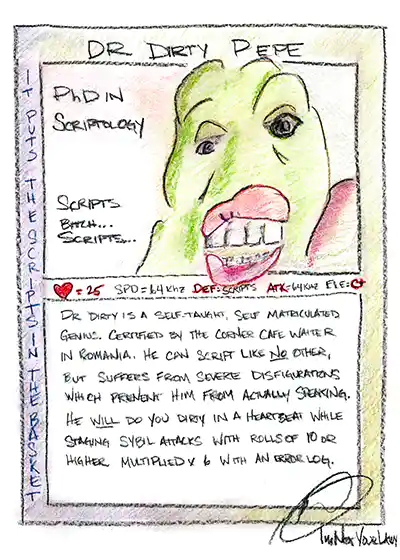 DR DIRTY PEPE
IT PUTS THE SCRIPTS IN THE BASKET
PHD IN
SCRIPTOLOGY
SCRIPTS
BITCH...
SCRIPTS...
♥=25 SPD=64KHZ DEF:SCRIPTS ATK-64KHZ ELE:C+
DR DIRTY IS A SELF-TAUGHT, SELF MATRICULATED
GENIUS. CERTIFIED BY THE CORNER CAFE WAITER
IN ROMANIA. HE CAN SCRIPT LIKE NO OTHER,
BUT SUFFERS FROM SEVERE DISFIGURATIONS
WHICH PREVENT HIM FROM ACTUALLY SPEAKING.
HE WILL DO YOU DIRTY IN A HEARTBEAT WHILE
STAGING SYBIL ATTACKS WITH ROLLS OF 10 OR
HIGHER MULTIPLIED X 6 WITH AN ERROR LOG.